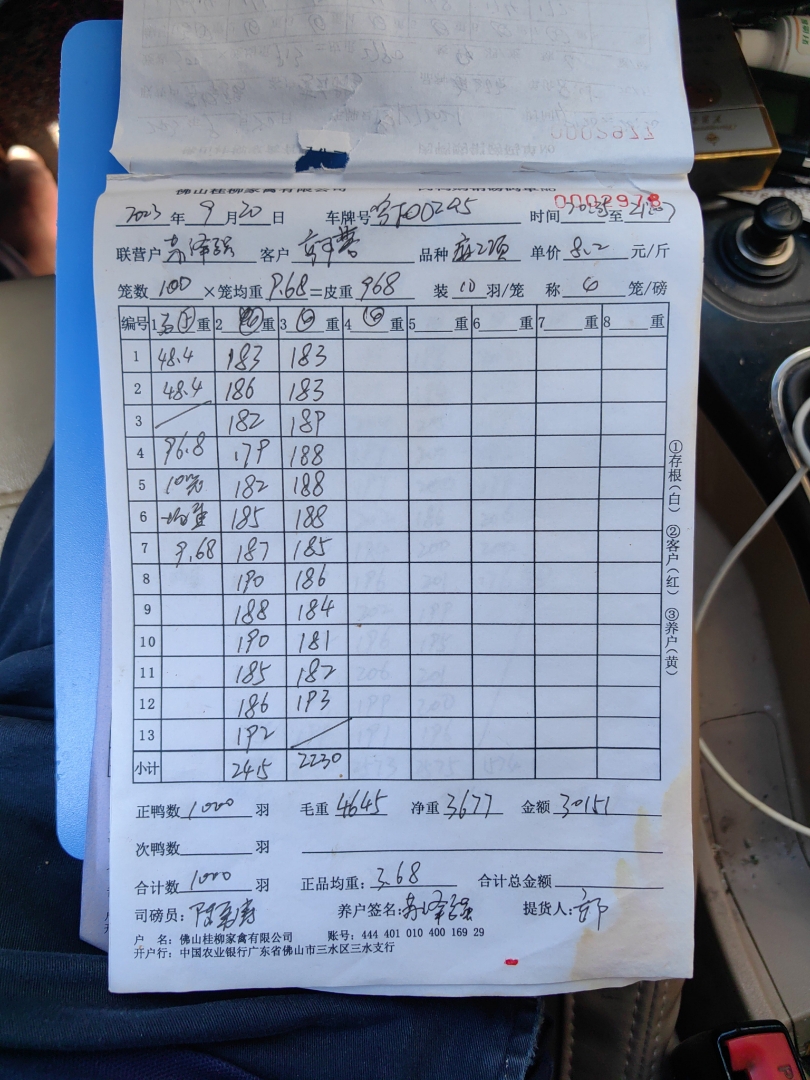 0002977
0002978
2023 年 9 月 20 日 车牌号 时间 至
联营户 苏泽强 客户 品种 单价 8.2 元/斤
笼数 100 ×笼均重 9.68 =皮重 968 装 10 羽/笼 称 笼/磅
编号 1 重 2 重 3 重 4 重 5 重 6 重 7 重 8 重
1 48.4 183 183
2 48.4 186 183
3 182 189
4 96.8 179 188
5 182 188
6 均重 185 188
7 9.68 187 185
8 190 186
9 188 184
10 190 181
11 185 182
12 186 193
13 192
小计 2415 2230
正鸭数 1000 羽 毛重 4645 净重 3677 金额 30151
次鸭数 羽
合计数 1000 羽 正品均重: 3.68 合计总金额
司磅员: 养户签名: 苏泽强 提货人:
户 名: 佛山桂柳家禽有限公司 账号: 444 401 010 400 169 29
开户行: 中国农业银行广东省佛山市三水区三水支行
①存根(白) ②客户(红) ③养户(黄)